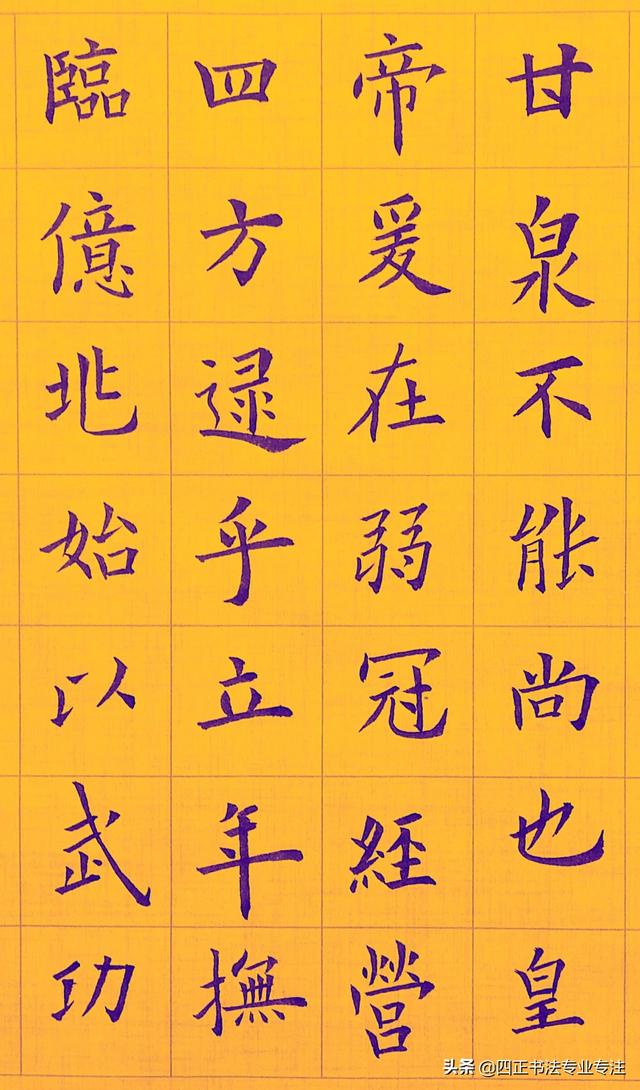 甘泉不能尚也皇
帝爰在弱冠經營
四方逯乎立年撫
臨億兆始以武功
头条 @四正书法专业专注